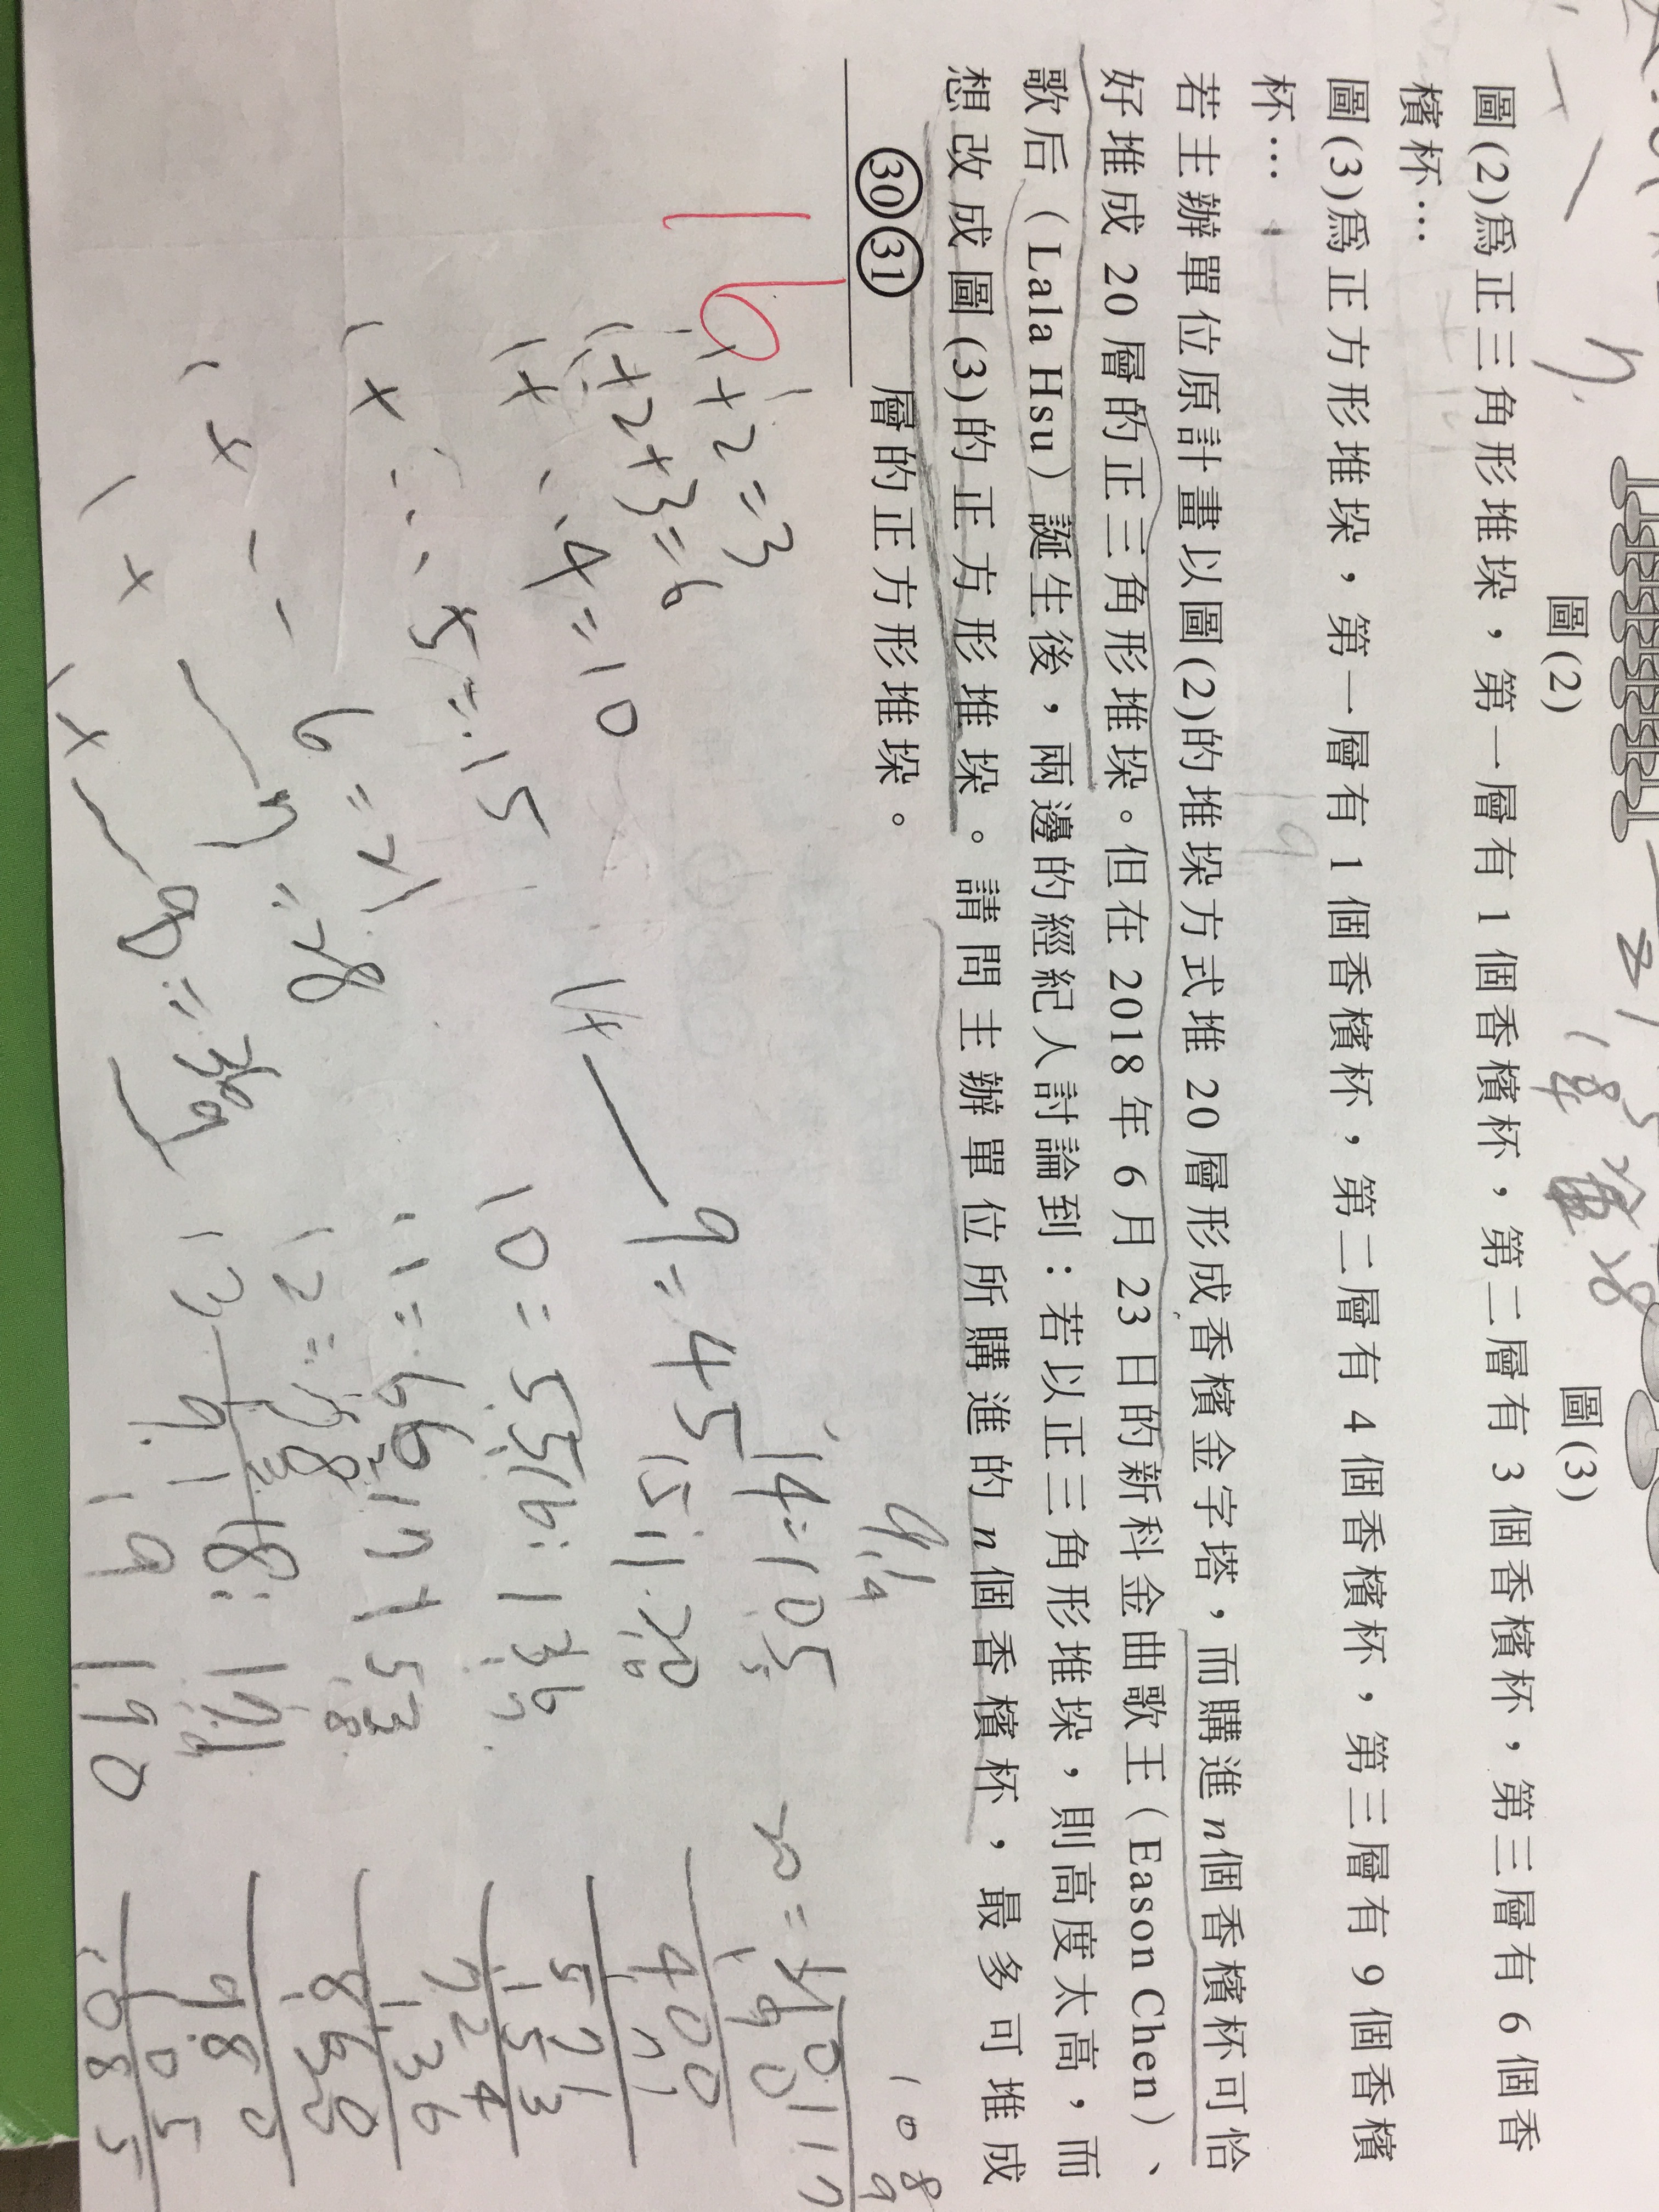 圖(2)
圖(3)
圖(2)爲正三角形堆垛，第一層有 1 個香檳杯，第二層有 3 個香檳杯，第三層有 6 個香
檳杯…
圖(3)爲正方形堆垛，第一層有 1 個香檳杯，第二層有 4 個香檳杯，第三層有 9 個香檳
杯…
若主辦單位原計畫以圖(2)的堆垛方式堆 20 層形成香檳金字塔，而購進 n 個香檳杯可恰
好堆成 20 層的正三角形堆垛。但在 2018 年 6 月 23 日的新科金曲歌王（Eason Chen）、
歌后（Lala Hsu）誕生後，兩邊的經紀人討論到：若以正三角形堆垛，則高度太高，而
想改成圖(3)的正方形堆垛。請問主辦單位所購進的 n 個香檳杯，最多可堆成
㉚㉛ 層的正方形堆垛。
16
1+2=3
1+2+3=6
1+ 4=10
1+ … 5=15
6=21
7=28
8=36
9=45
10=55
11=66
12=78
13 91
14=105
15:120
16:136
17 153
18: 171
19 190